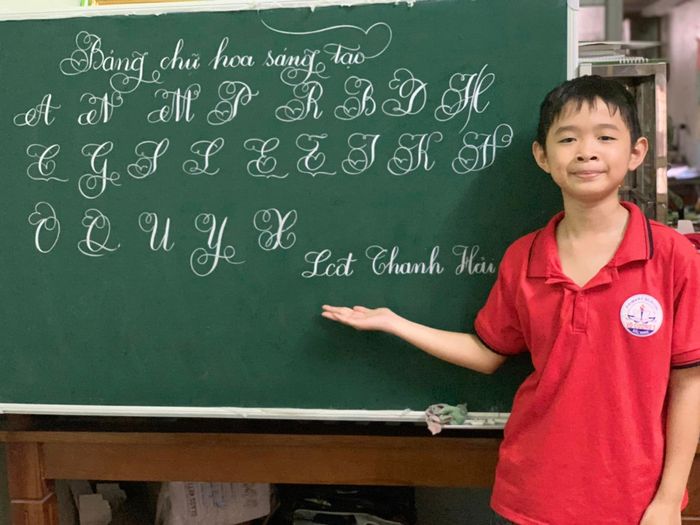 Bảng chữ hoa sáng tạo
A N M P R B D H
C G S L E Ê I K H
O Q U Y X
Lcđt Thanh Hải